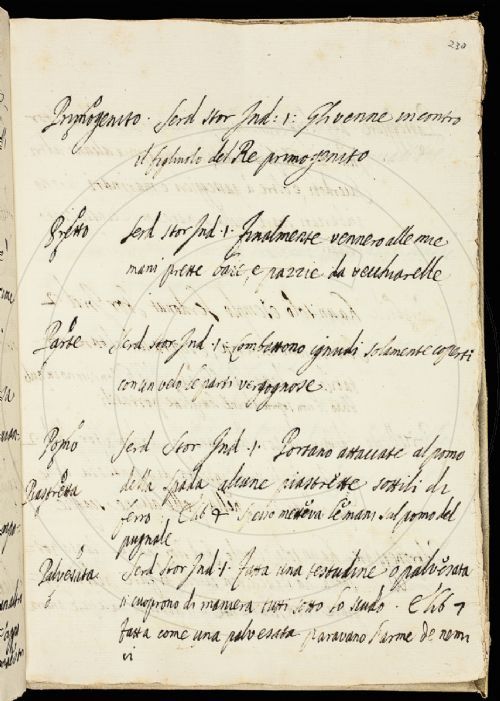 230
Primogenito. Serd Stor Ind: 1: Gli venne incontro
il figliuolo del Re primogenito
Pretto Serd Stor Ind. 1. finalmente vennero alle mie
mani prette baie, e pazzie da vecchiarelle
Parte Serd Stor Ind. 1. combattono ignudi solamente coperti
con un velo le parti vergognose
Pomo Serd Stor Ind. 1. Portano attaccate al pomo
Piastretta della spada alcune piastrette sottili di
ferro E lib spesso metteva le mani sul pomo del
pugnale
Palvesata Serd Stor Ind. 1. fatta una testudine o palvesata
si cuoprono di maniera tutti sotto lo scudo. E lib 7
fatta come una palvesata paravano l'arme de nemi
ci